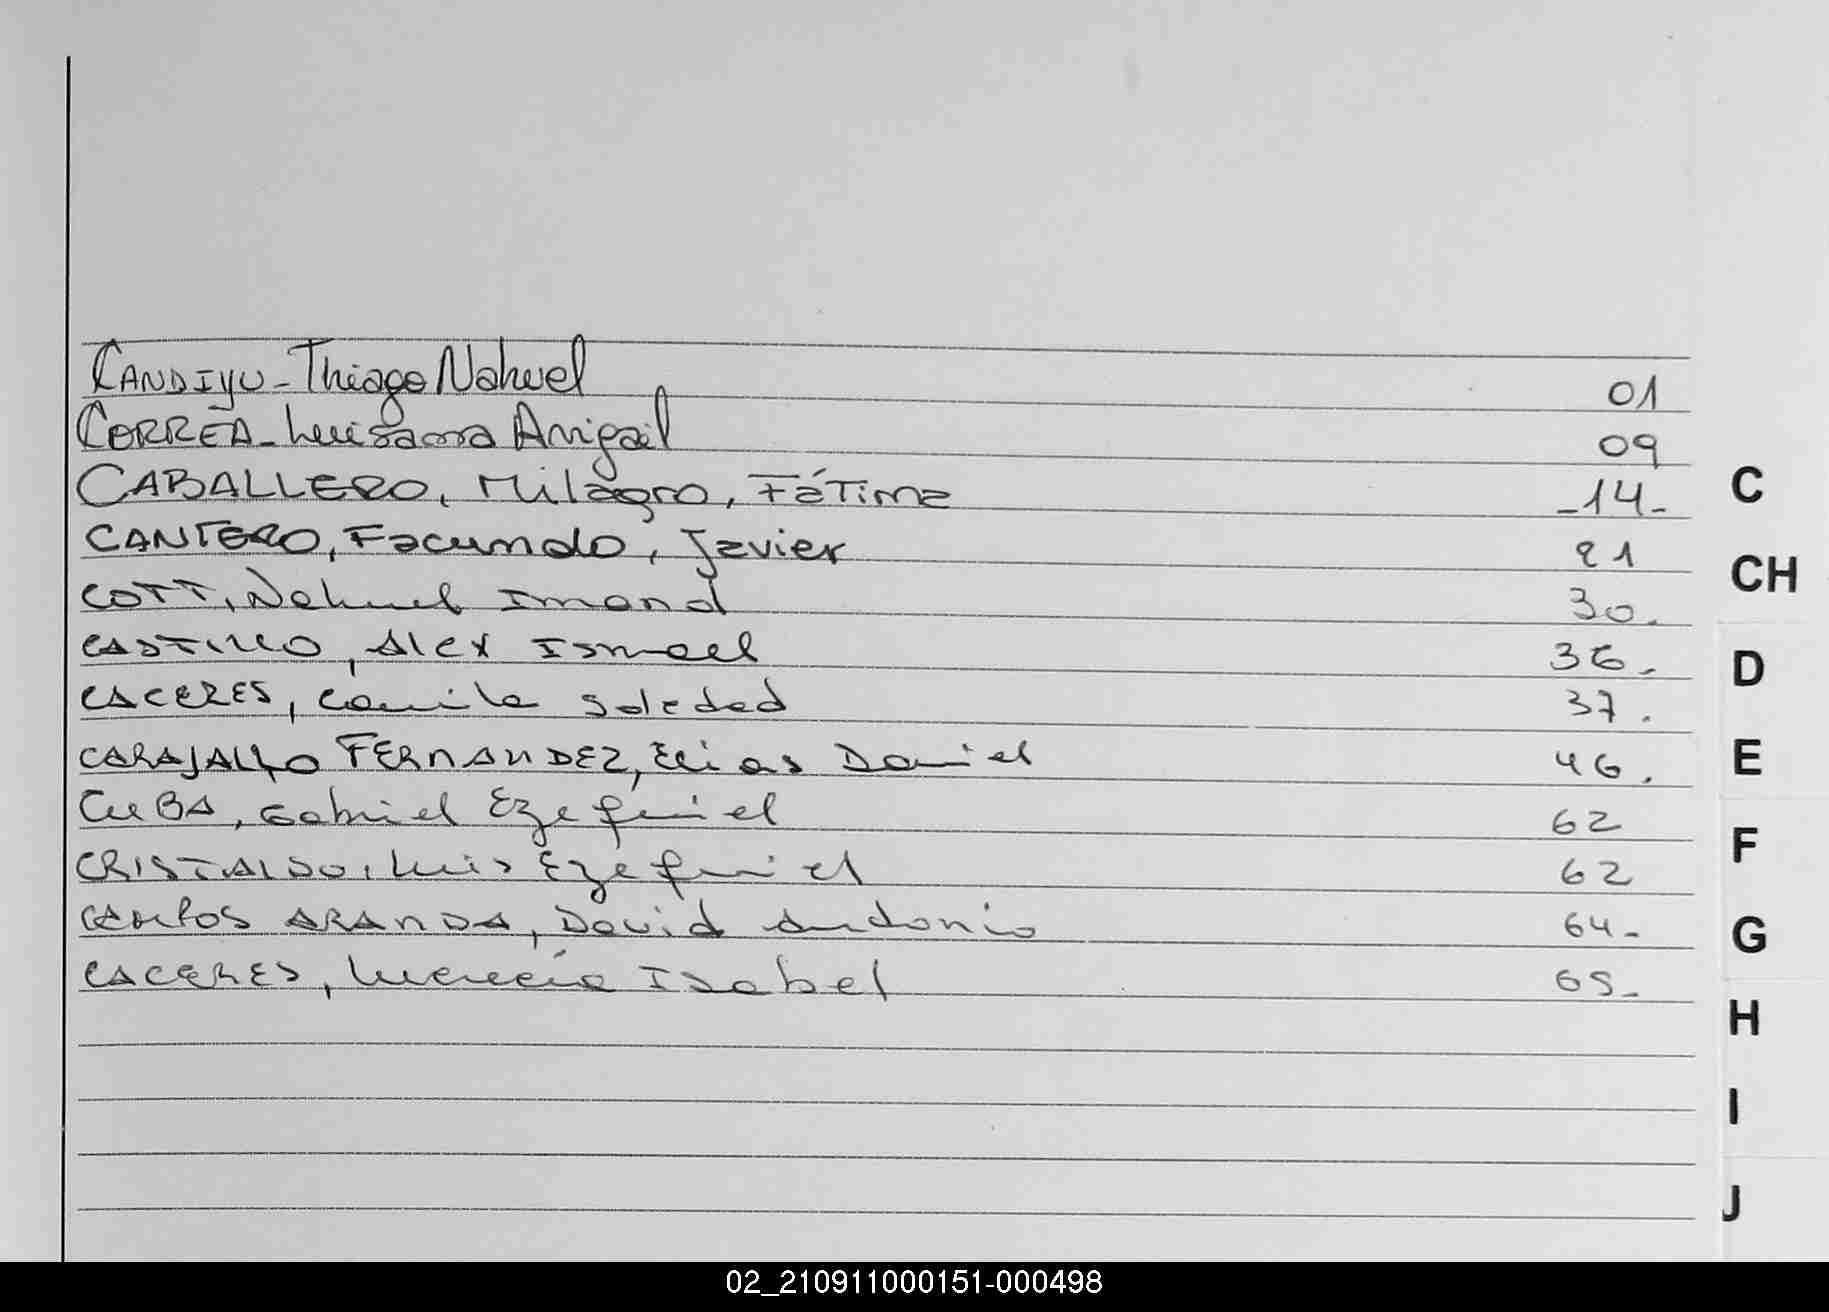 CANDIYU - Thiago Nahuel 01
CORREA - Luisana Avigail 09
CABALLERO, Milagro, Fátima -14-
CANTERO, Facundo, Javier 21
COTT, Nahuel Imanol 30.
CASTILLO, Alex Ismael 36.
CACERES, Camila Soledad 37.
CARAJALLO FERNANDEZ, Elias Daniel 46.
CUBA, Gabriel Ezequiel 62
CRISTALDO, Luis Ezequiel 62
CAMPOS ARANDA, David Antonio 64-
CACERES, Isabel 65-
C
CH
D
E
F
G
H
I
J
02_210911000151-000498